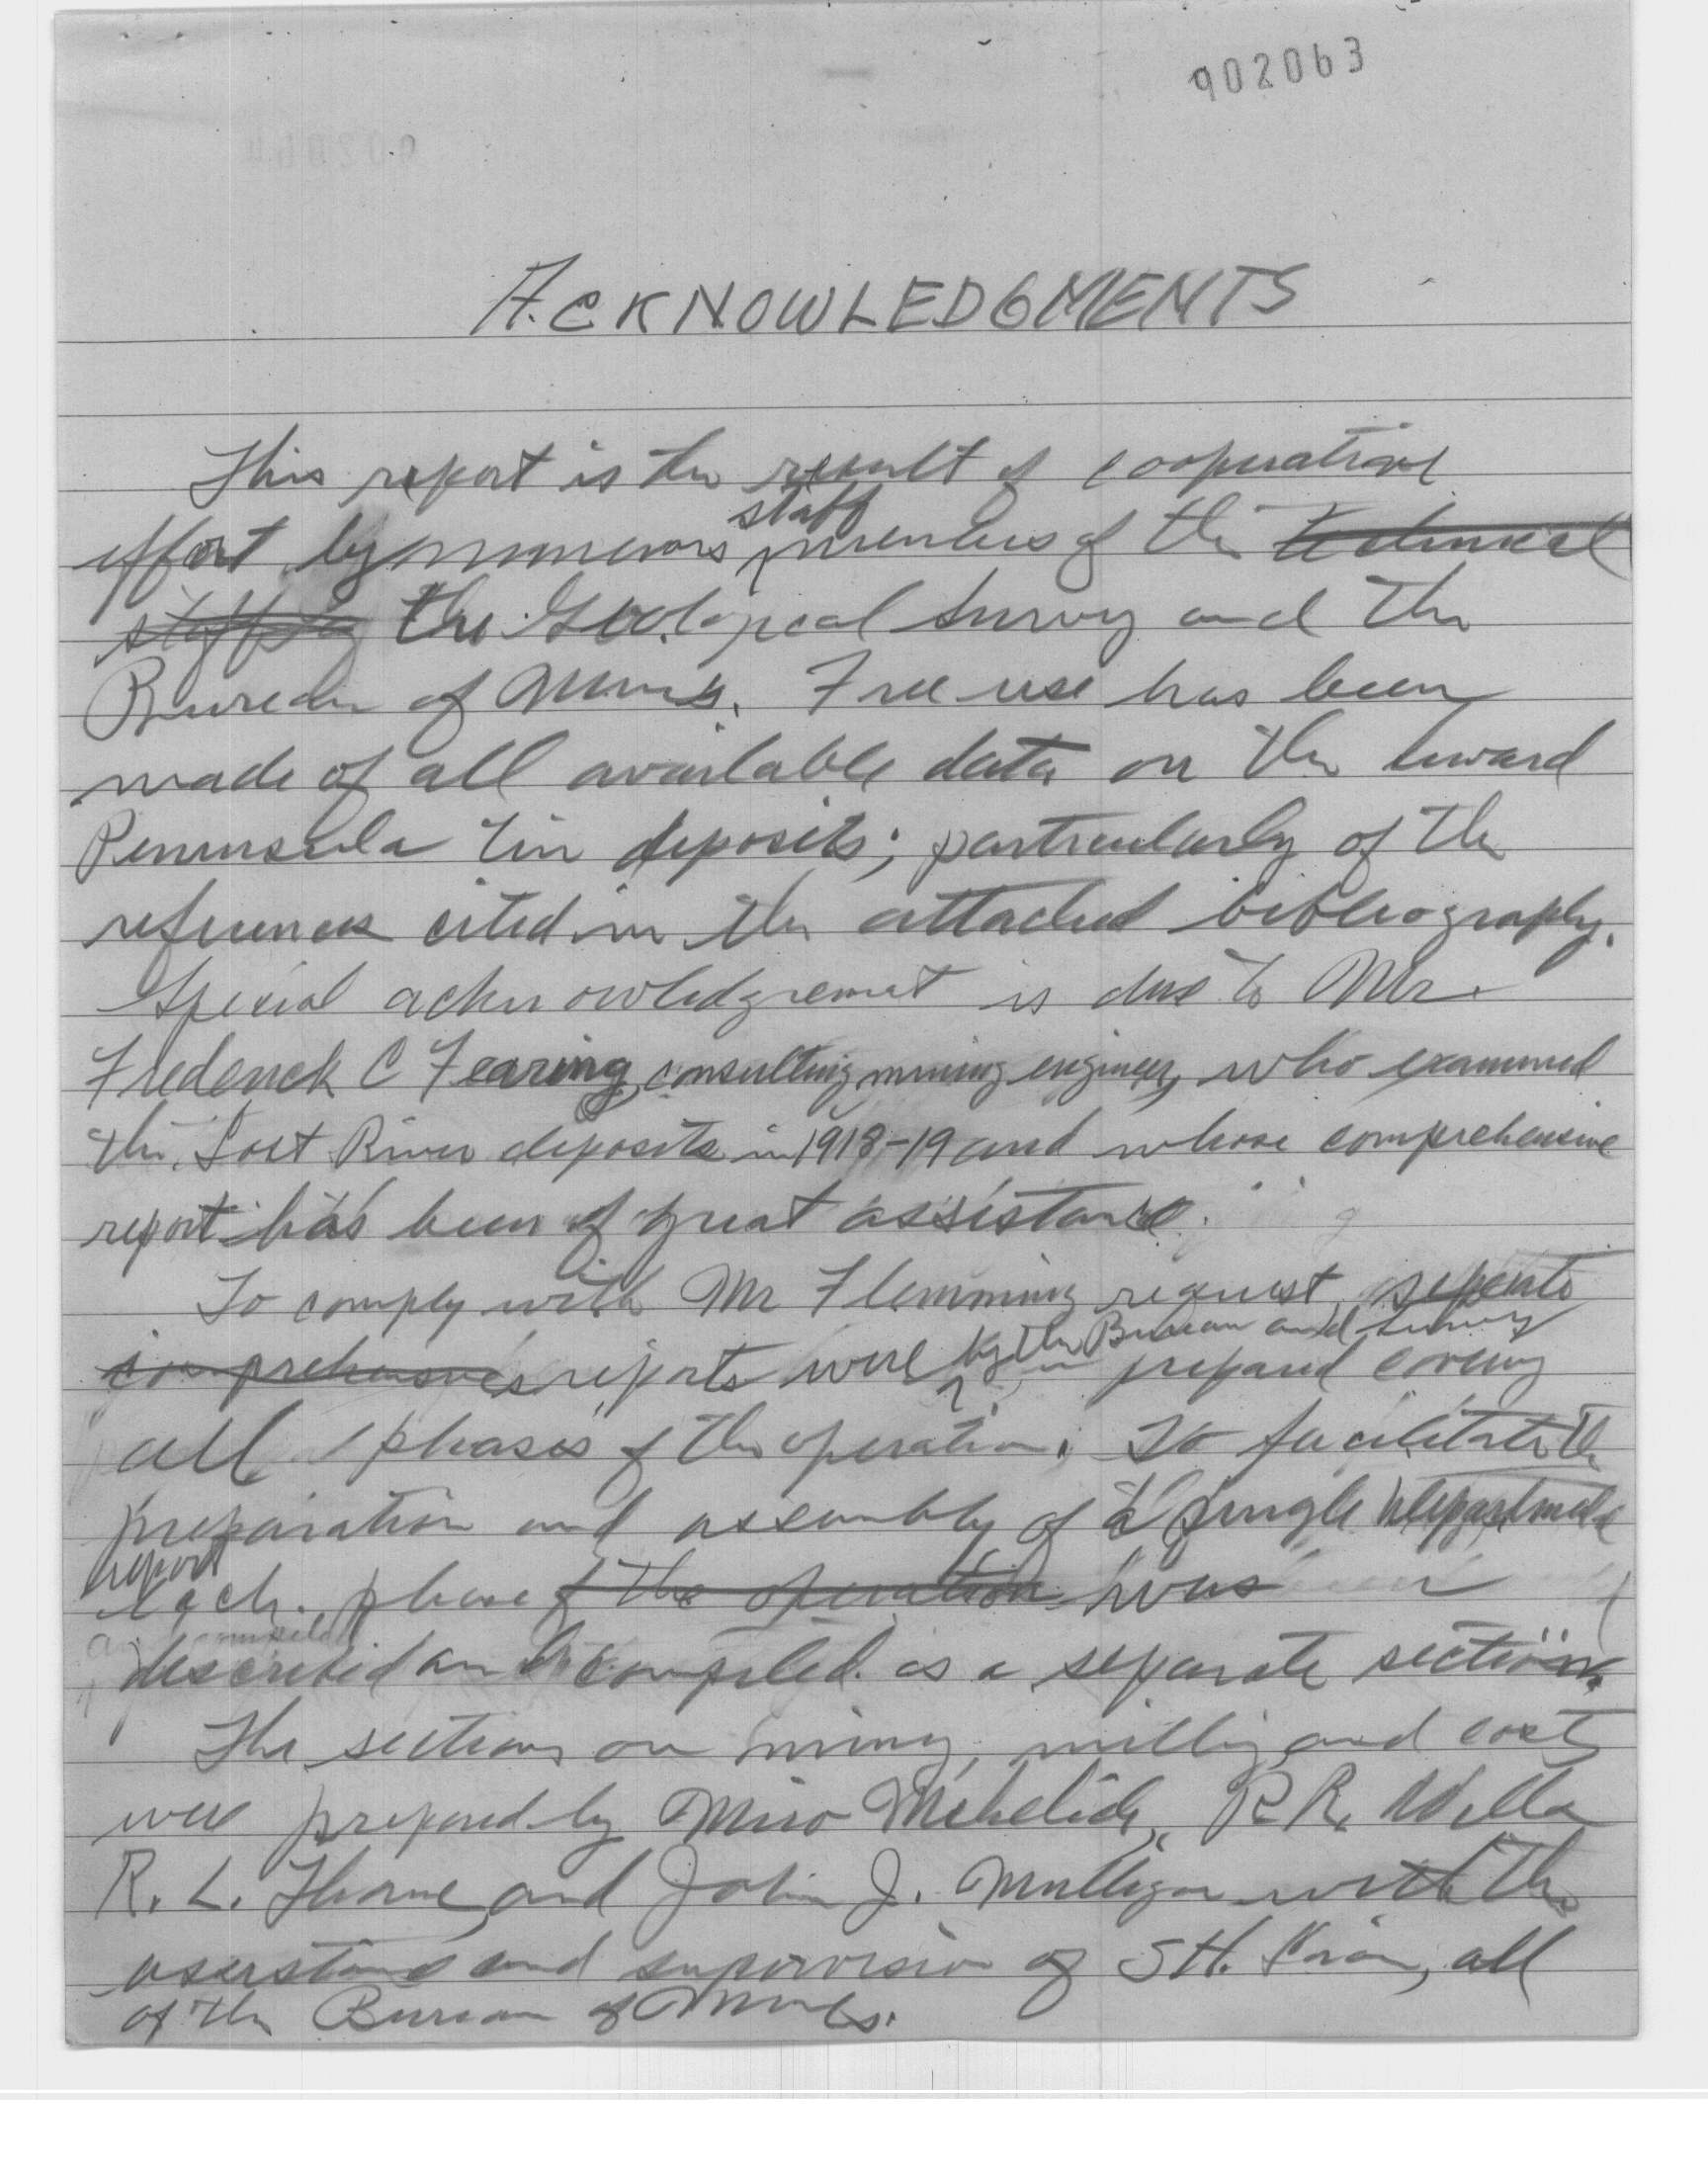 902063
ACKNOWLEDGMENTS
This report is the result of cooperative
staff
effort by numerous members of the technical
the Geological Survey and the
Bureau of Mines. Free use has been
made of all available data on the Seward
Peninsula tin deposits; particularly of the
references cited in the attached bibliography.
Special acknowledgement is due to Mr.
Frederick C Fearing, consulting mining engineer, who examined
the Lost River deposits in 1918-19 and whose comprehensive
report has been of great assistance.
To comply with Mr Flemming request, separate
by the Bureau and Survey
comprehensive reports were prepared covering
all phases of the operation. To facilitate the
preparation and assembly of a single
report
each phase of the operation was
described and compiled as a separate section.
The sections on mining, milling and costs
were prepared by Miro Mihelich, R R. Wells
R. L. Thorne and John J. Mulligan with the
assistance and supervision of S H. all
of the Bureau of Mines.